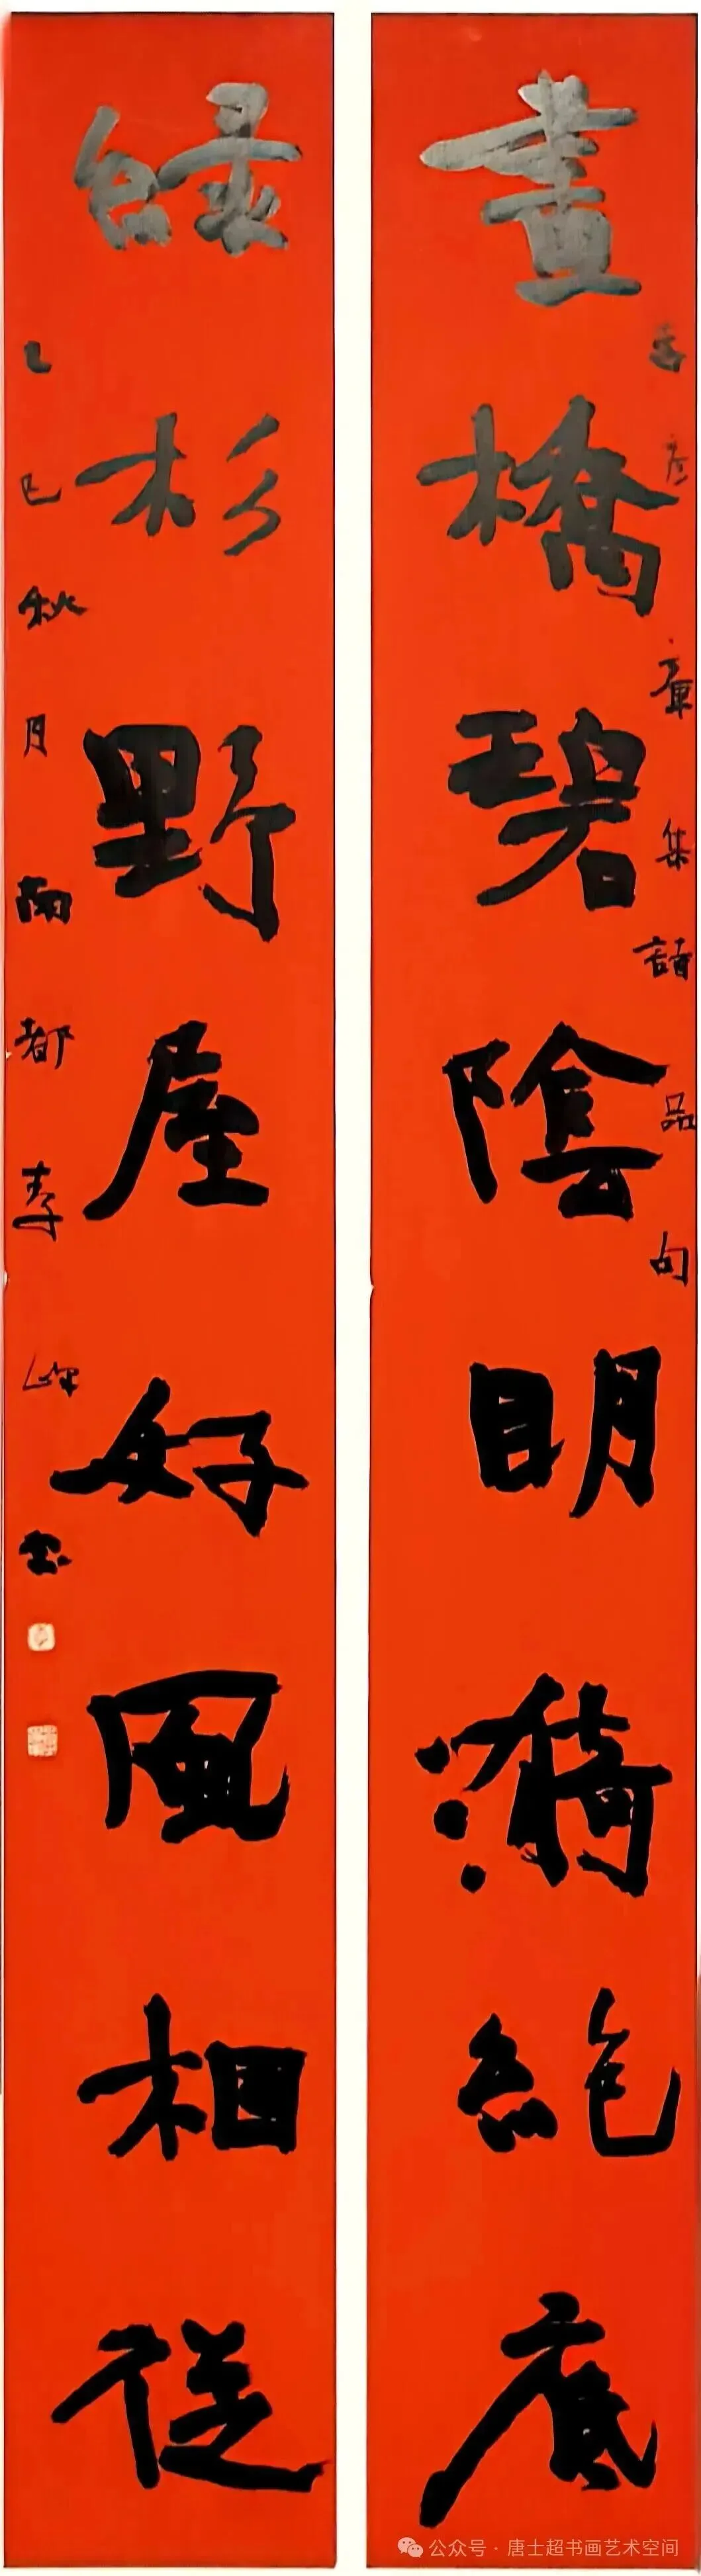 畫橋碧陰明漪絕底
彦庫集詩品句
綠杉野屋好風相從
乙巳秋月南都李
公众号·唐士超书画艺术空间